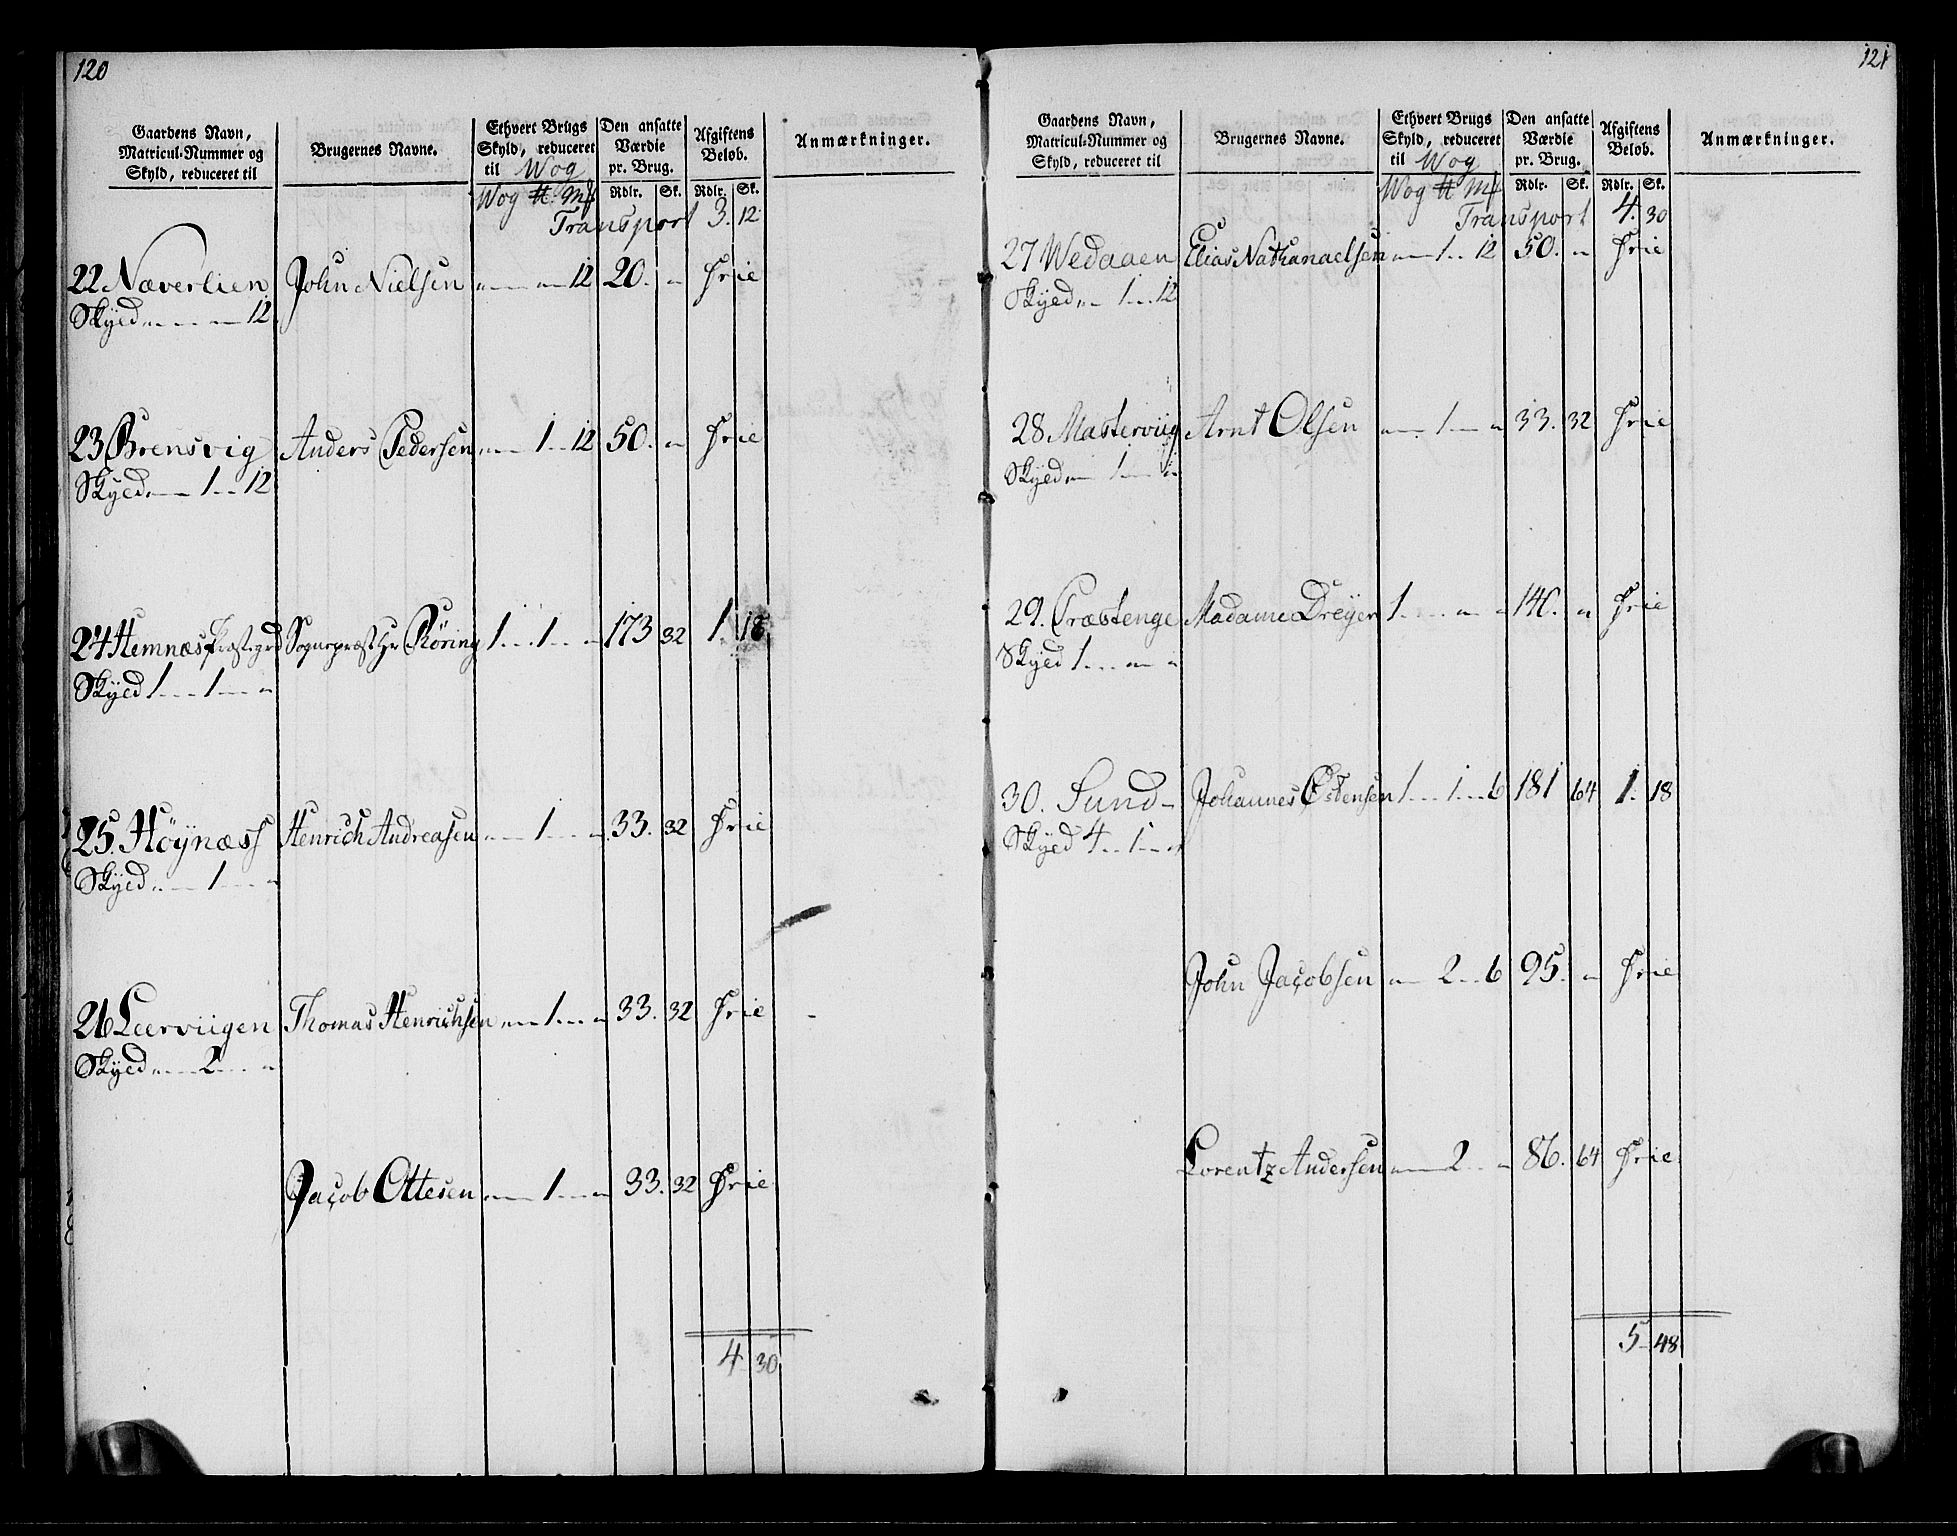 120
Gaardens Navn, Matricul-Nummer og Skyld, reduceret til | Brugernes Navne. | Ethvert Brugs Skyld, reduceret til Wog | Den ansatte Værdie pr. Brug. | Afgiftens Beløb. | Anmærkninger.
Wog ℔ Mk | Rdlr. | Sk. | Rdlr. | Sk.
Transport 3. 12
22 Næverlien John Nielsen " " 12 20. " Frie
Skyed " " 12
23 Brensvig Anders Pedersen " 1 12 50. " Frie
Skyed " 1 12
24 Hemnæs Præstegrd Sognepræst Hr Röring 1 1 " 173 32 1. 18
Skyed 1 1 "
25. Höynæss Henrich Andreasen " 1 " 33. 32 Frie
Skyed " 1 "
26 Leerviigen Thomas Henrichsen " 1 " 33. 32 Frie
Skyed " 2 "
Jacob Ottesen " 1 " 33. 32 Frie
4 30
121
Gaardens Navn, Matricul-Nummer og Skyld, reduceret til | Brugernes Navne. | Ethvert Brugs Skyld, reduceret til Wog | Den ansatte Værdie pr. Brug. | Afgiftens Beløb. | Anmærkninger.
Wog ℔ Mk | Rdlr. | Sk. | Rdlr. | Sk.
Transport 4. 30
27 Wedaaen Elias Nathanaelsen " 1 12 50. " Frie
Skyed " 1 12
28 Masterviig Arnt Olsen " 1 " 33. 32 Frie
Skyed " 1 "
29. Præstenge Madame Dreyer 1 " " 140. " Frie
Skyed 1 " "
30. Sund Johannes Östensen 1 1 6 181 64 1. 18
Skyed 4 1 "
John Jacobsen " 2 6 95. " Frie
Lorentz Andersen " 2 " 86. 64 Frie
5 48